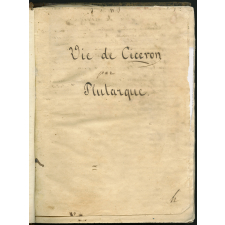 Vie de Ciceron
par
Plutarque